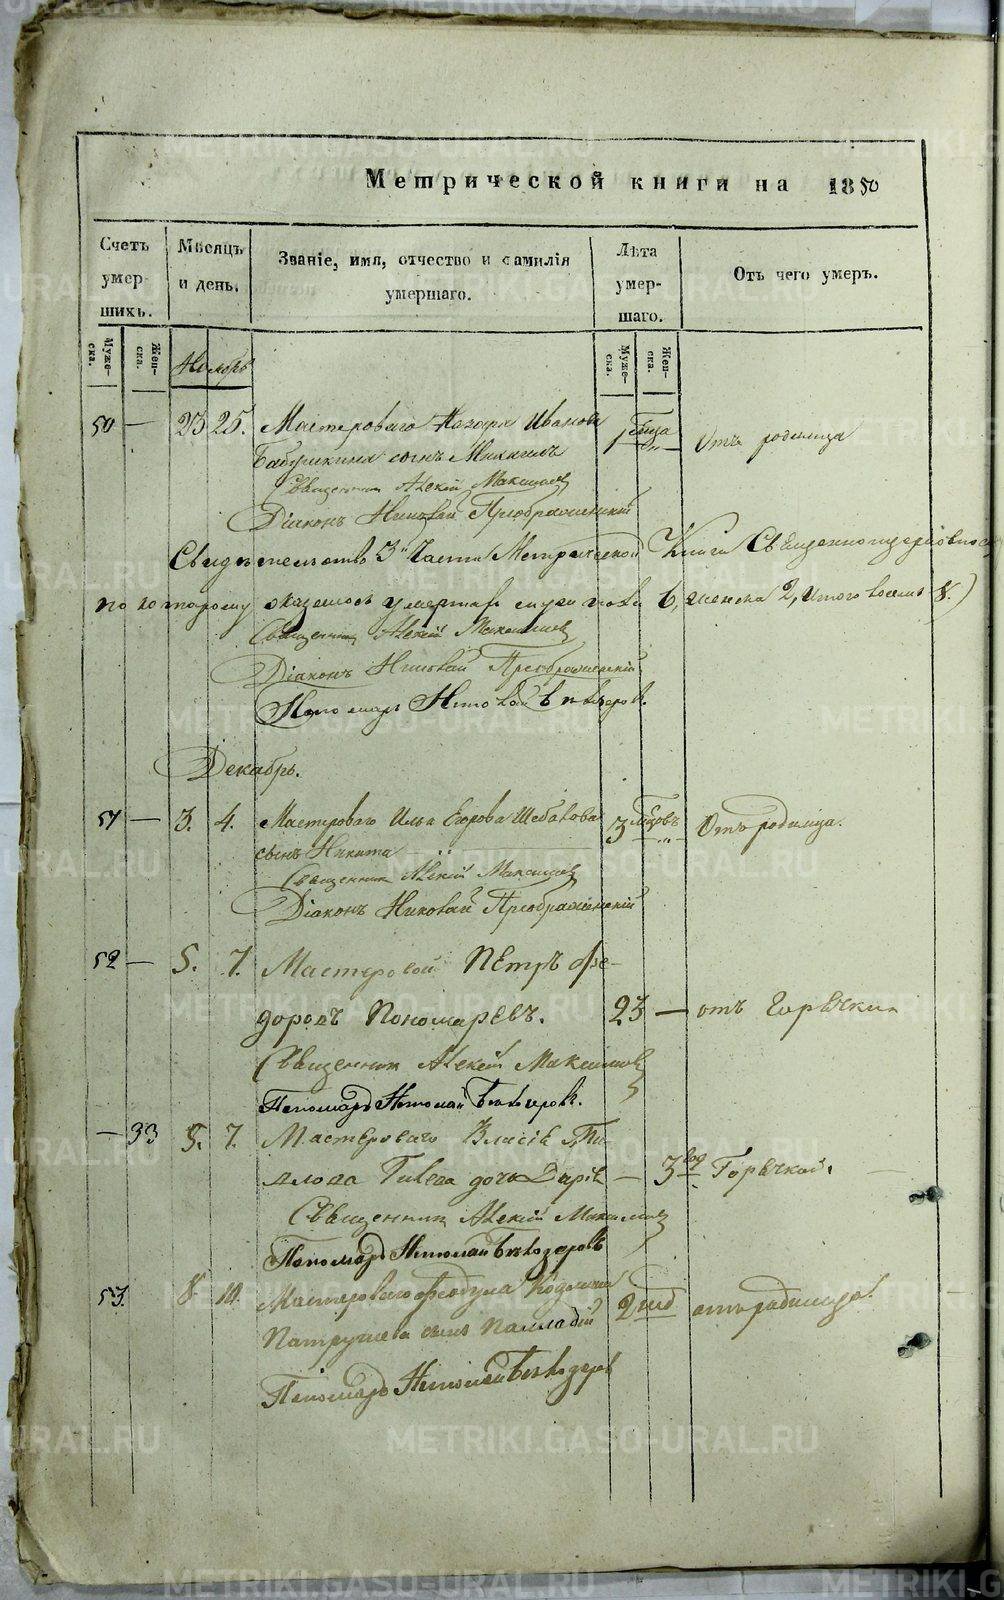 Метрической книги на 1850
Счетъ умершихъ.
Мѣсяцъ и день.
Званіе, имя, отчество и фамилія умершаго.
Лѣта умершаго.
Отъ чего умеръ.
Мужеска.
Женска.
Мужеска.
Женска.
Ноябрь
50 — 23 25. Мастероваго Назара Иванова
Бабушкина сынъ Михаилъ
Отъ родимца
Священникъ Алексій Максимовъ
Діаконъ Николай Преображенскій
Свидѣтельство 3й Части Метрической Книги
по которому оказалось умершихъ мужеска 6, женска 2, итого восемь 8.)
Священникъ Алексій Максимовъ
Діаконъ Николай Преображенскій
Пономарь Николай
Декабрь.
51 — 3. 4. Мастероваго Ильи Егорова
сынъ Никита
3 Отъ родимца.
Священникъ Алексій Максимовъ
Діаконъ Николай Преображенскій
52 — 5. 7. Мастеровой Пётръ Фе-
доровъ Пономаревъ. 23 — отъ Горячки
Священникъ Алексій Максимовъ
Пономарь Николай
— 33 5. 7. Мастероваго
дочь Дарія — 3 год Горячкой.
Священникъ Алексій Максимовъ
Пономарь Николай
53. 8 10. Мастероваго Феодула Козмина
Патрушева сынъ Палладій 2 отъ родимца.
Пономарь Николай
METRIKI.GASO-URAL.RU